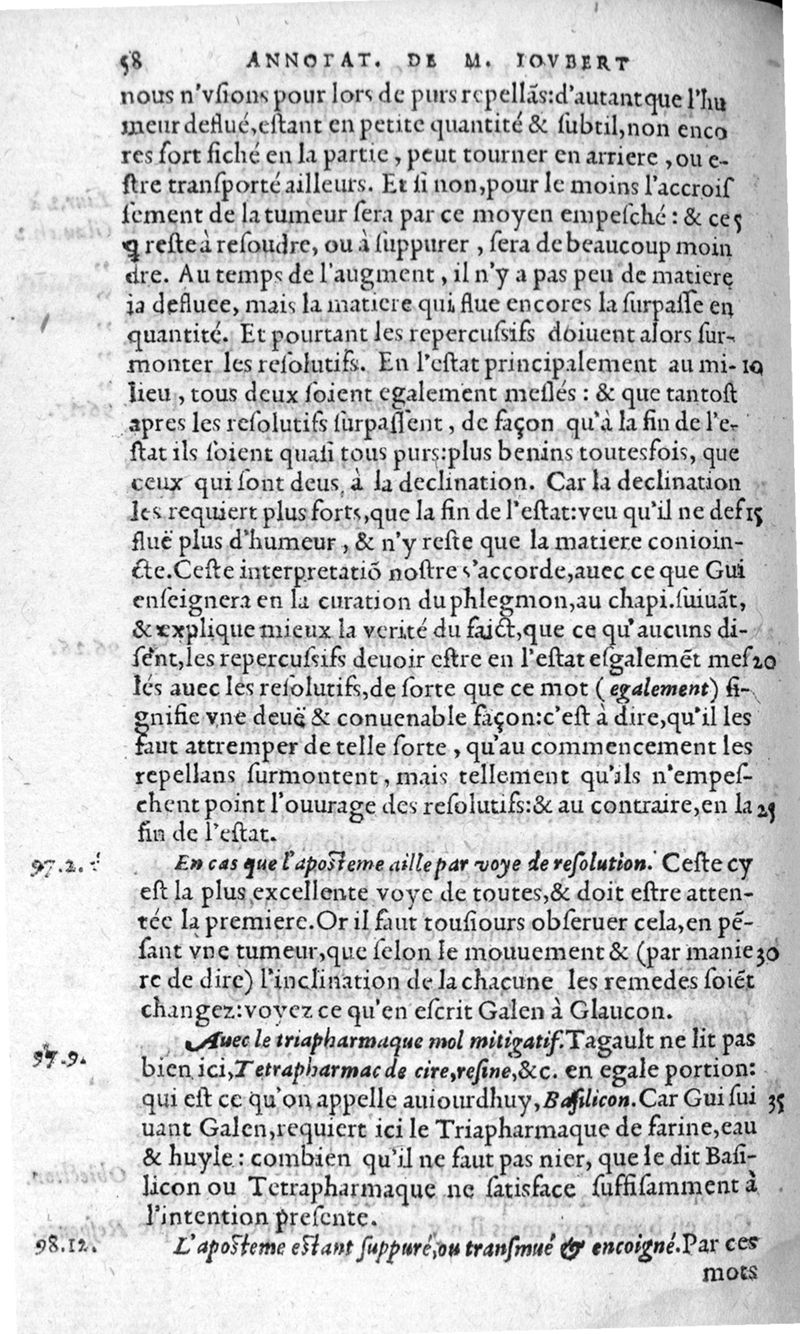 58 ANNOTAT. DE M. IOVBERT
nous n'vſions pour lors de purs repellãs:d'autant que l'hu
meur deflué,eſtant en petite quantité & ſubtil,non enco
res fort fiché en la partie , peut tourner en arriere ,ou e-
ſtre tranſporté ailleurs. Et ſi non,pour le moins l'accroiſ
ſement de la tumeur ſera par ce moyen empeſché : & ce 5
ꝗ reſte à reſoudre, ou à ſuppurer , ſera de beaucoup moin
dre. Au temps de l'augment , il n'y a pas peu de matiere
ia defluee, mais la matiere qui flue encores la ſurpaſſe en
quantité. Et pourtant les repercuſsifs doiuent alors ſur-
monter les reſolutifs. En l'eſtat principalement au mi- 10
lieu , tous deux ſoient egalement meſlés : & que tantoſt
apres les reſolutifs ſurpaſſent , de façon qu'à la fin de l'e-
ſtat ils ſoient quaſi tous purs:plus benins toutesfois, que
ceux qui ſont deus à la declination. Car la declination
les requiert plus forts,que la fin de l'eſtat:veu qu'il ne deſ 15
fluë plus d'humeur , & n'y reſte que la matiere conioin-
cte.Ceſte interpretatiõ noſtre s'accorde,auec ce que Gui
enſeignera en la curation du phlegmon,au chapi.ſuiuãt,
& explique mieux la verité du faict,que ce qu'aucuns di-
ſent,les repercuſsifs deuoir eſtre en l'eſtat eſgalemẽt meſ 20
lés auec les reſolutifs,de ſorte que ce mot (egalement) ſi-
gnifie vne deuë & conuenable façon:c'eſt à dire,qu'il les
faut attremper de telle ſorte , qu'au commencement les
repellans ſurmontent , mais tellement qu'ils n'empeſ-
chent point l'ouurage des reſolutifs:& au contraire,en la 25
fin de l'eſtat.
97.2. En cas que l'apoſteme aille par voye de reſolution. Ceſte cy
eſt la plus excellente voye de toutes,& doit eſtre atten-
tée la premiere.Or il faut touſiours obſeruer cela,en pẽ-
ſant vne tumeur,que ſelon le mouuement & (par manie 30
re de dire) l'inclination de la chacune les remedes ſoiẽt
changez:voyez ce qu'en eſcrit Galen à Glaucon.
97.9. Auec le triapharmaque mol mitigatif.Tagault ne lit pas
bien ici,Tetrapharmac de cire,reſine,&c. en egale portion:
qui eſt ce qu'on appelle auiourdhuy,Baſilicon.Car Gui ſui 35
uant Galen,requiert ici le Triapharmaque de farine,eau
& huyle : combien qu'il ne faut pas nier, que le dit Baſi-
licon ou Tetrapharmaque ne ſatisface ſuffiſamment à
l'intention preſente.
98.12. L'apoſteme eſtant ſuppuré,ou tranſmué & encoigné.Par ces
mots